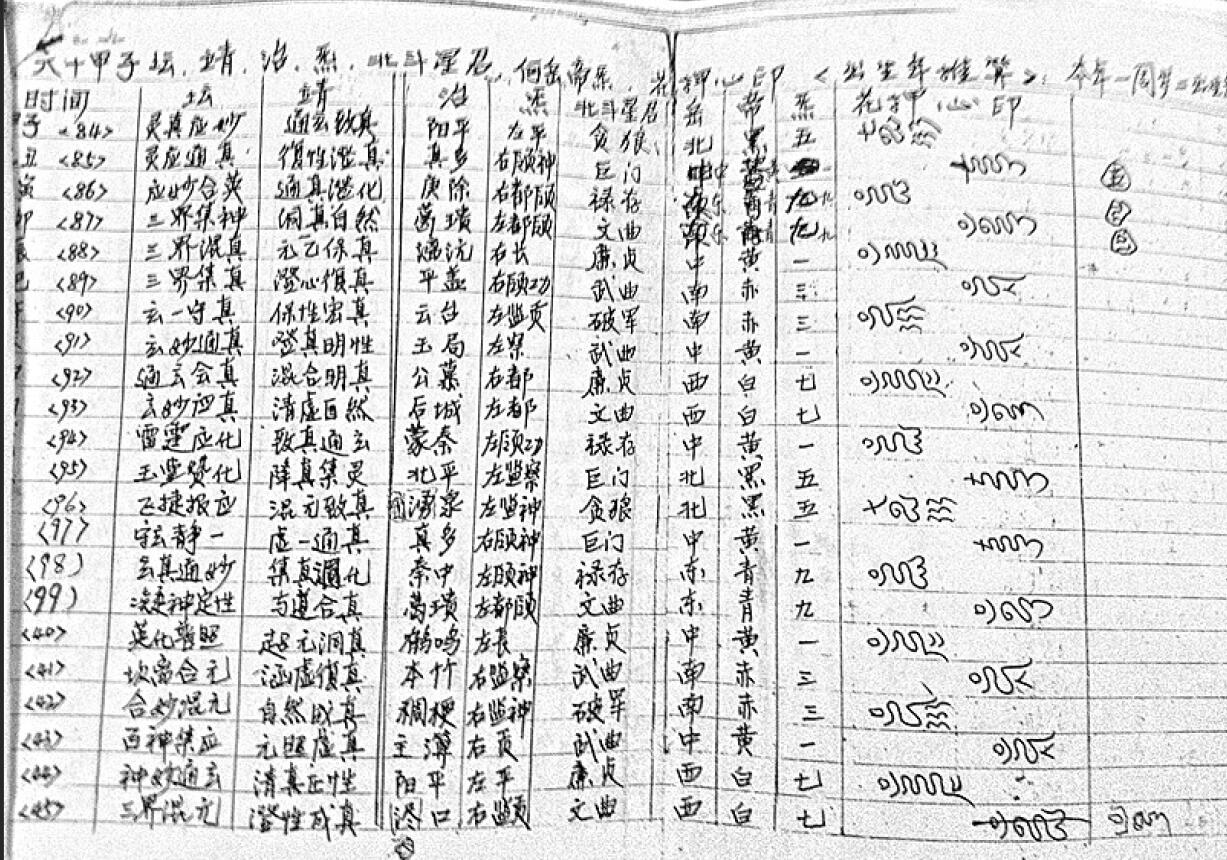 六十甲子坛.靖.治.炁.北斗星君.何岳帝炁.花押心印<出生年推算>.本年一周岁
时间 坛 靖 治 炁 北斗星君 岳 帝 炁 花押心印
子 <84> 灵真应妙 通玄致真 阳平 左平 贪狼 北 黑 五
丑 <85> 灵应通真 復性澄真 真多 右领神 巨门 中
寅 <86> 应妙合英 通真澄化 庚除 右都领 禄存 东 青 九
卯 <87> 三界集神 洞真自然 葛璝 左都领 文曲 东 青 九
辰 <88> 三界混真 元乙保真 漏沅 右长 廉贞 中 黄 一
巳 <89> 三界集真 澄心復真 平盖 右领功 武曲 南 赤 三
<90> 玄一守真 保性宏真 云台 左监贡 破军 南 赤 三
<91> 玄妙通真 澄真明性 玉局 左察 武曲 中 黄 一
<92> 通玄会真 混合明真 公慕 右都 廉贞 西 白 七
<93> 玄妙四真 清虚自然 后城 左都 文曲 西 白 七
<94> 雷霆应化 致真通玄 蒙秦 左领功 禄存 中 黄 一
<95> 玉堂赞化 降真集灵 北平 左监察 巨门 北 黑 五
<96> 飞捷报应 混元致真 湧泉 左监神 贪狼 北 黑 五
<97> 守玄静一 虚一通真 真多 右领神 巨门 中 黄 一
<98> 玄真通妙 集真 化 秦中 左领神 禄存 东 青 九
<99> 神定性 与道合真 葛璝 左都领 文曲 东 青 九
<40> 英化 照 超元洞真 鹤鸣 左长 廉贞 中 黄 一
<41> 坎离合元 涵虚復真 本竹 右监察 武曲 南 赤 三
<42> 合妙混元 自然成真 稠梗 右监神 破军 南 赤 三
<43> 百神集应 元照虚真 主簿 右贡 武曲 中 黄 一
<44> 神妙通玄 清真正性 阳平 左平 廉贞 西 白 七
<45> 三界混元 澄性成真 浕口 右监贡 文曲 西 白 七